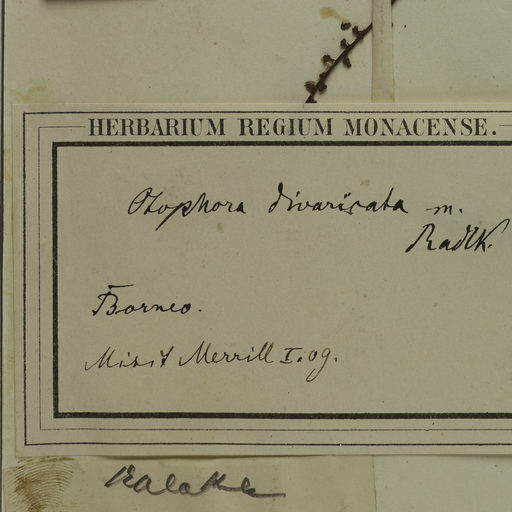 HERBARIUM REGIUM MONACENSE.
Otophora divaricata m.
Radlk.
Borneo.
Misit Merrill I.09.